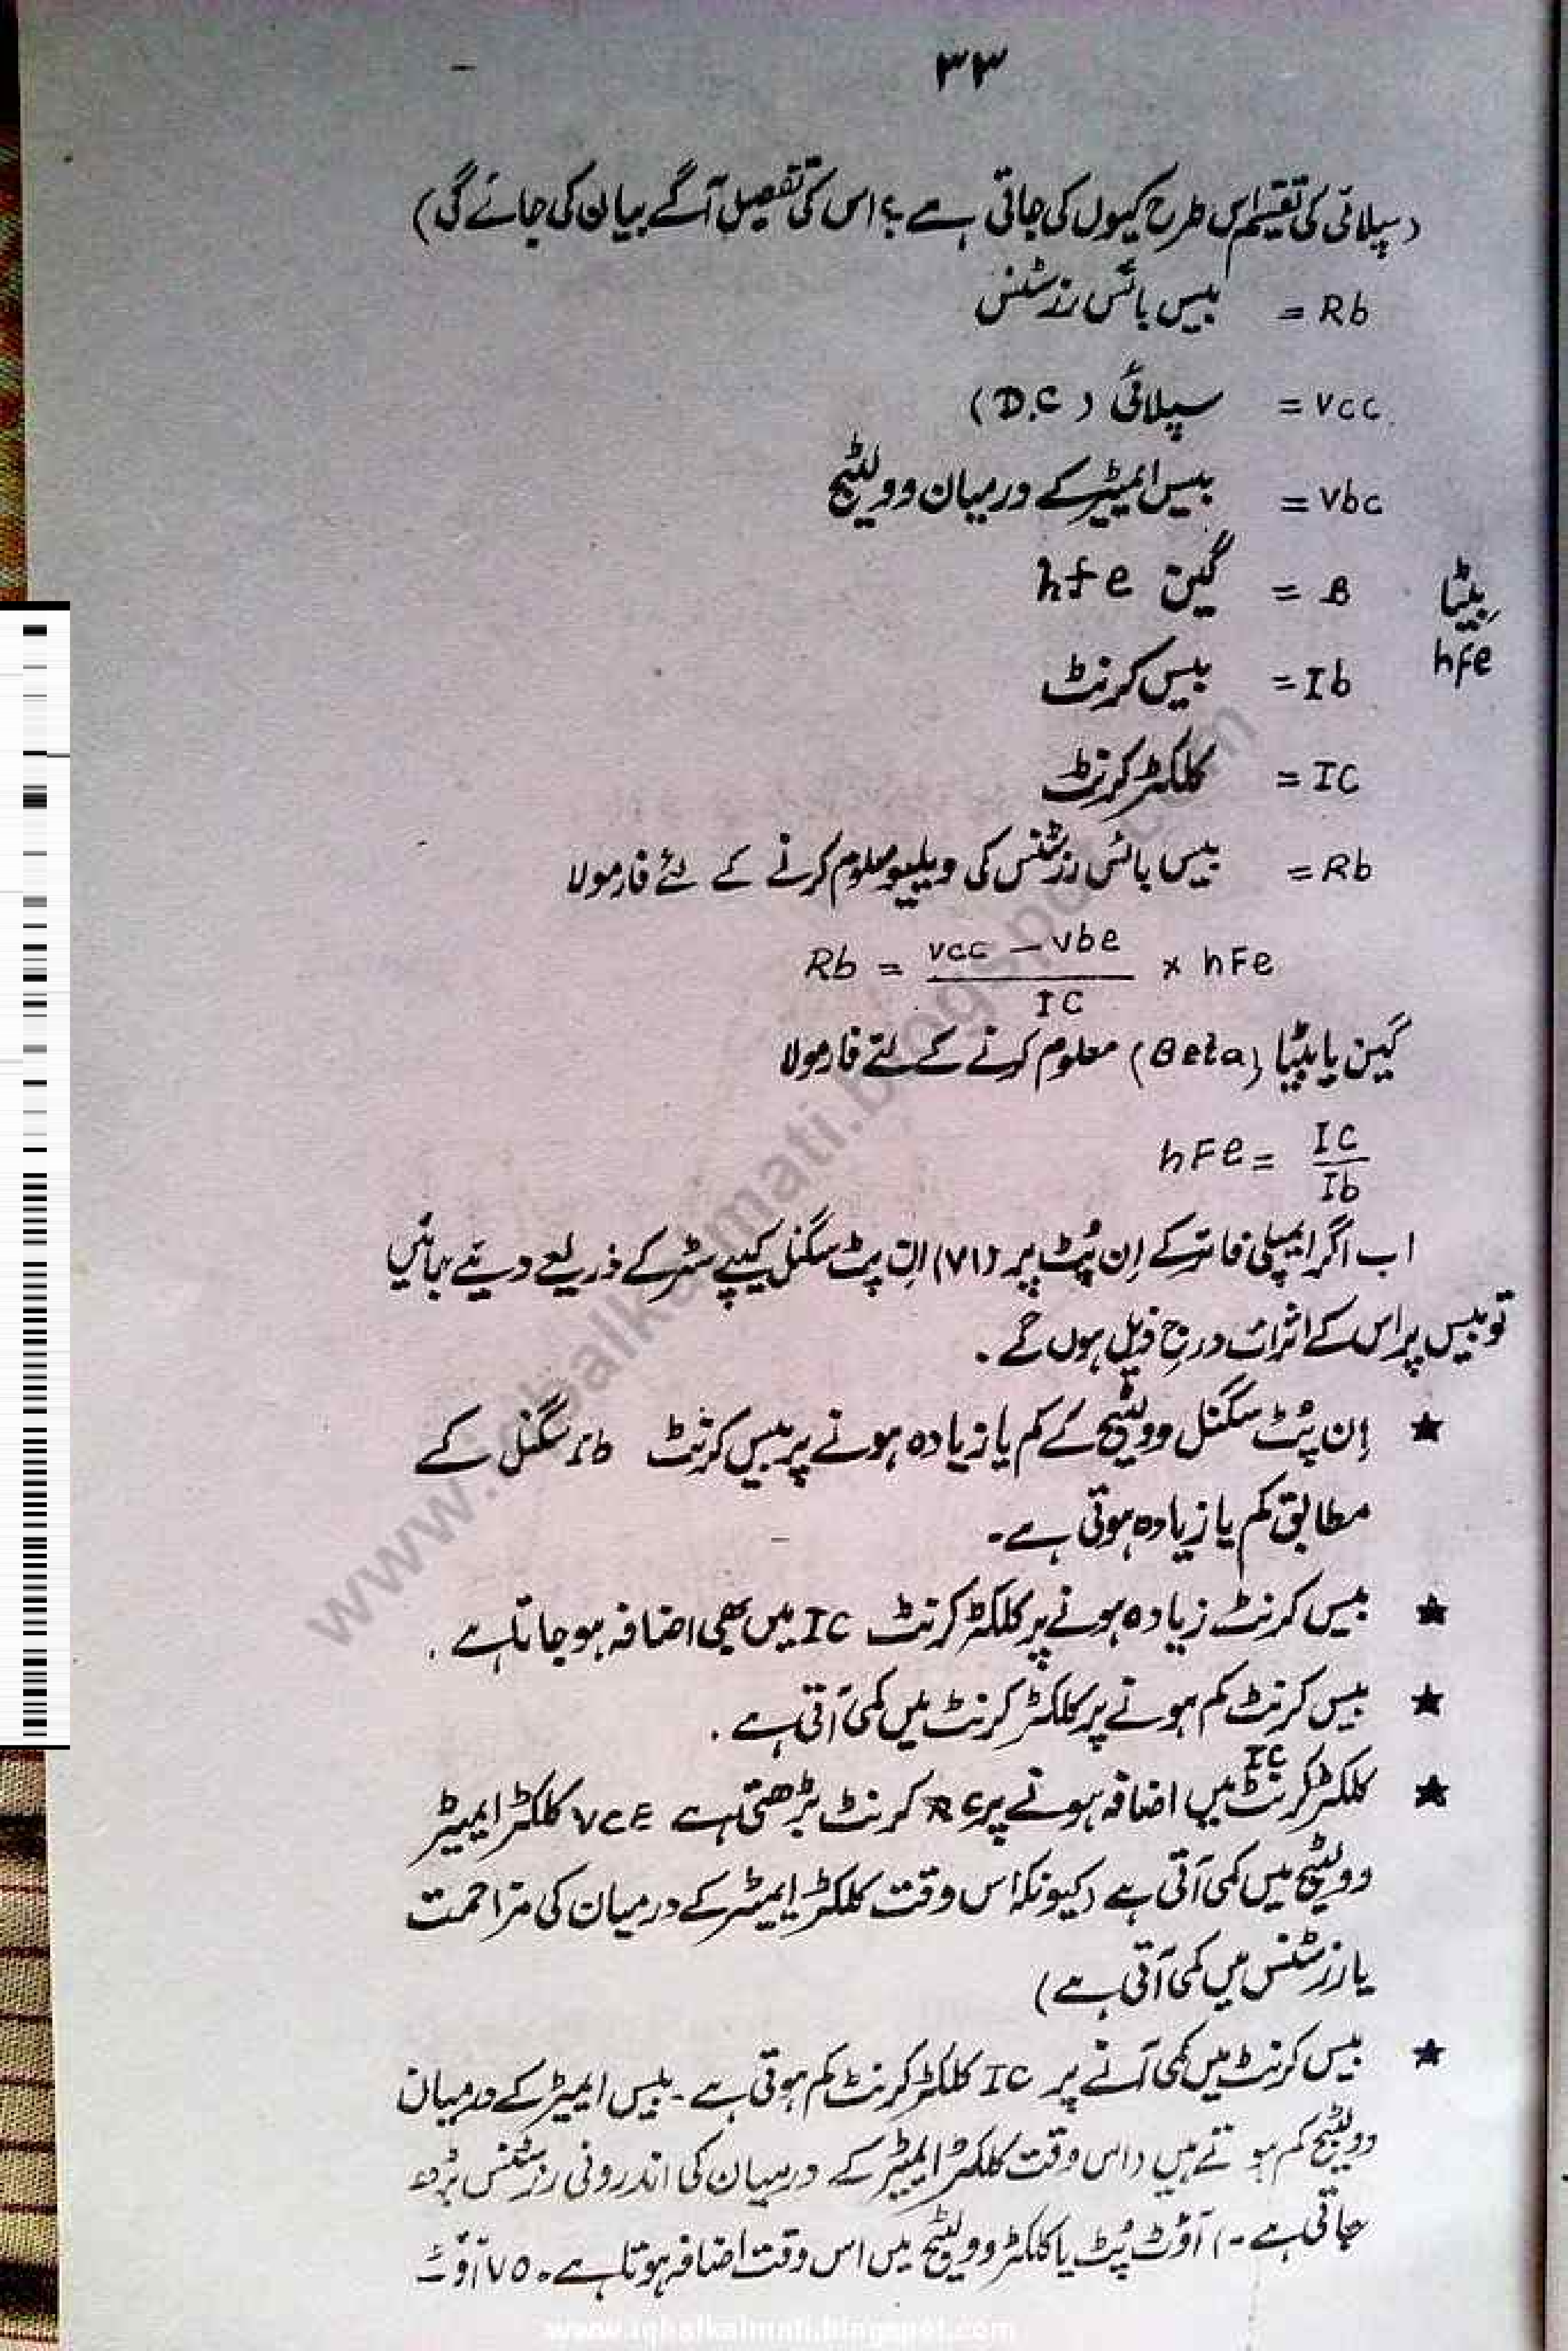 ۳۳
(سپلائی کی تقسیم اس طرح کیوں کی جاتی ہے؟ اس کی تفصیل آگے بیان کی جائے گی)
Rb = بیس بائس رزسٹنس
Vcc = سپلائی (D.C)
Vbc = بیس ایمیٹر کے درمیان وولٹیج
بیٹا B = گین hfe
hFe
Ib = بیس کرنٹ
IC = کلکٹر کرنٹ
Rb = بیس بائس رزسٹنس کی ویلیو معلوم کرنے کے لئے فارمولا
Rb = (Vcc − Vbe) / IC × hFe
گین یا بیٹا (Beta) معلوم کرنے کے لئے فارمولا
hFe = Ic / Ib
اب اگر ایمپلی فائر کے اِن پُٹ پر (VI) اِن پٹ سگنل کیپے سٹر کے ذریعے دیئے جائیں
تو بیس پر اس کے اثرات درج ذیل ہوں گے۔
★ اِن پُٹ سگنل وولٹیج کے کم یا زیادہ ہونے پر بیس کرنٹ Ib سگنل کے
مطابق کم یا زیادہ ہوتی ہے۔
★ بیس کرنٹ زیادہ ہونے پر کلکٹر کرنٹ IC میں بھی اضافہ ہو جاتا ہے۔
★ بیس کرنٹ کم ہونے پر کلکٹر کرنٹ میں کمی آتی ہے۔
★ کلکٹر کرنٹ IC میں اضافہ ہونے پر RC کرنٹ بڑھتی ہے VCE کلکٹر ایمیٹر
وولٹیج میں کمی آتی ہے (کیونکہ اس وقت کلکٹر ایمیٹر کے درمیان کی مزاحمت
یا رزسٹنس میں کمی آتی ہے)
★ بیس کرنٹ میں کمی آنے پر IC کلکٹر کرنٹ کم ہوتی ہے۔ بیس ایمیٹر کے درمیان
وولٹیج کم ہوتے ہیں (اس وقت کلکٹر ایمیٹر کے درمیان کی اندرونی رزسٹنس بڑھ
جاتی ہے۔) آؤٹ پُٹ یا کلکٹر وولٹیج میں اس وقت اضافہ ہوتا ہے۔ VO آؤٹ
www.iqbalkalmati.blogspot.com
www.iqbalkalmati.blogspot.com